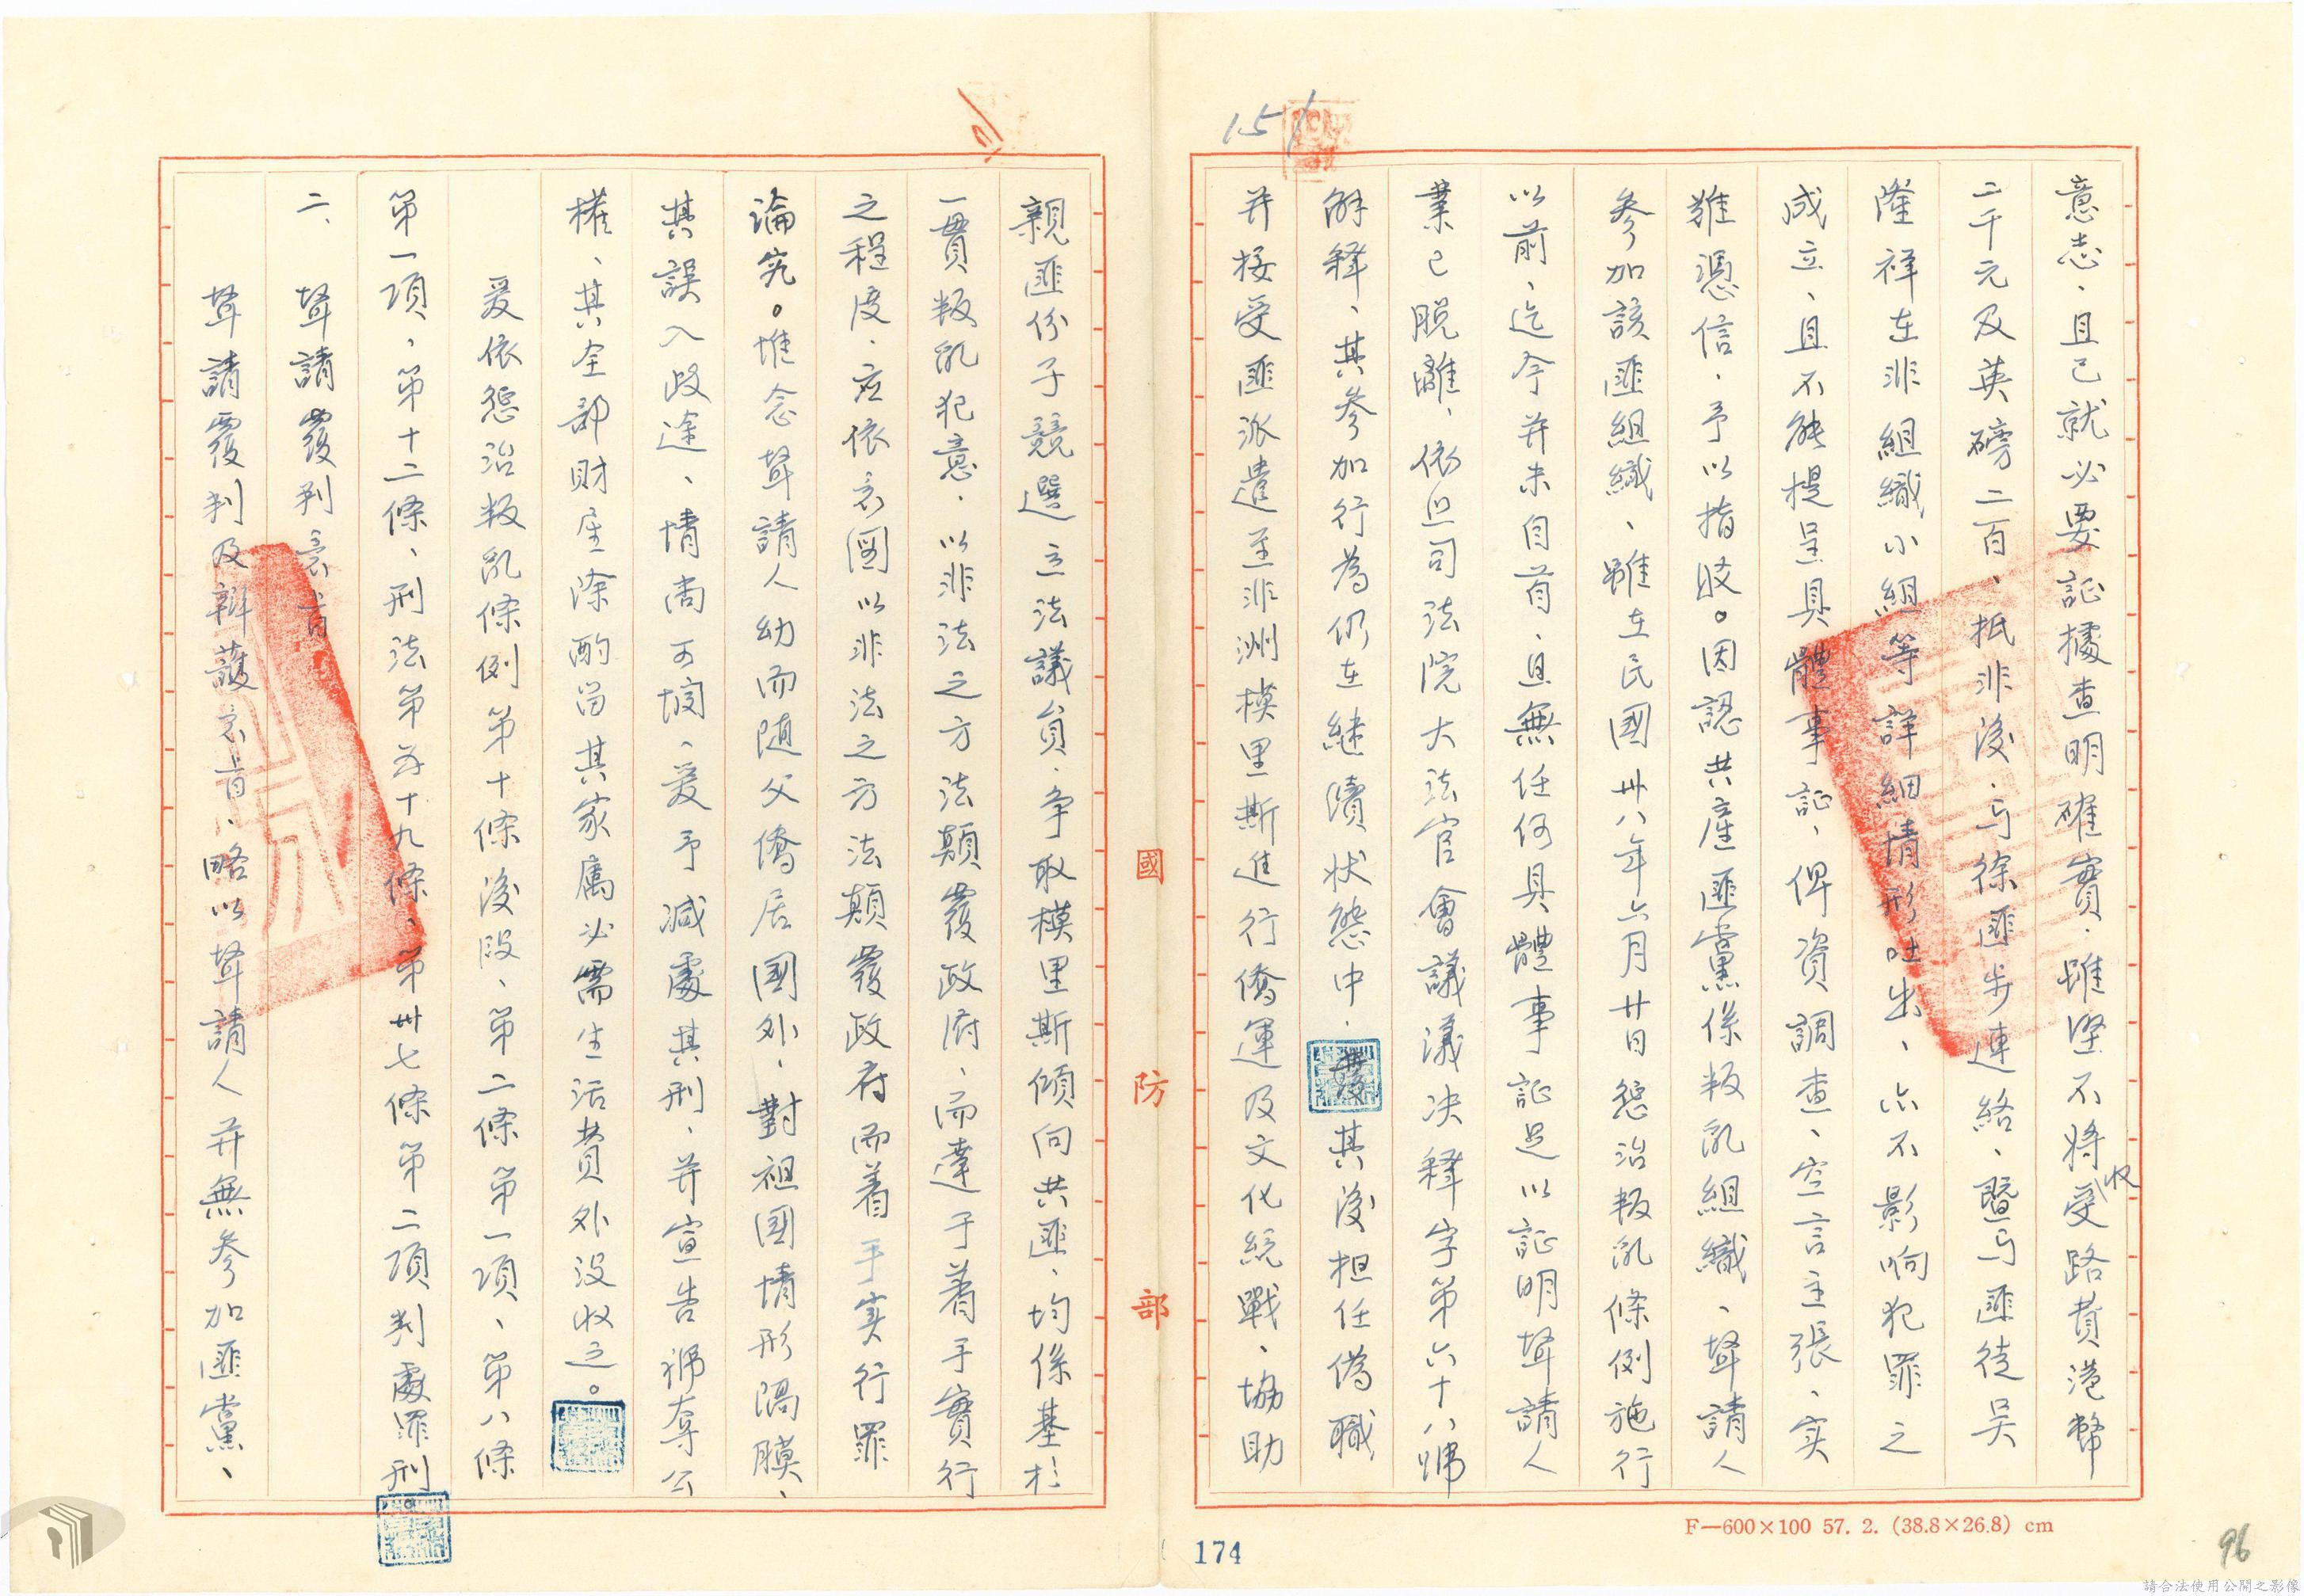 意志、且已就必要証據查明確實、雖堅不將收受路費港幣
二千元及英磅二百、抵非後、与徐匪步連絡、暨与匪徒吴
隆祥在非組織小組等詳細情形吐出、亦不影响犯罪之
成立、且不能提呈具體事証、俾資調查、空言主張、实
难憑信、予以指駁。因認共產匪黨係叛乱組織、聲請人
参加該匪組織、雖在民國卅八年六月廿日懲治叛乱條例施行
以前、迄今并未自首、且無任何具體事証足以証明聲請人
業已脱離、依照司法院大法官會議議决釋字第六十八號
解釋、其參加行為仍在継續状態中、其後担任偽職
并接受匪派遣至非洲模里斯進行僑運及文化統戰、協助
親匪份子競選立法議員、争取模里斯傾向共匪、均係基於
一貫叛乱犯意、以非法之方法顛覆政府、而達于着手實行
之程度、应依意圖以非法之方法顛覆政府而着手实行罪
論究。惟念聲請人幼而随父僑居國外、對祖國情形隔膜、
其誤入歧途、情尚可憫、爰予减處其刑、并宣告褫奪公
權、其全部財產除酌留其家屬必需生活費外没收之。
爰依懲治叛乱條例第十條後段、第二條第一項、第八條
第一項、第十二條、刑法第五十九條、第卅七條第二項判處罪刑。
二、聲請覆判意旨
聲請覆判及辯護意旨、略以聲請人并無參加匪黨、
國防部
F—600×100 57. 2. (38.8×26.8) cm
174
96
151
請合法使用公開之影像